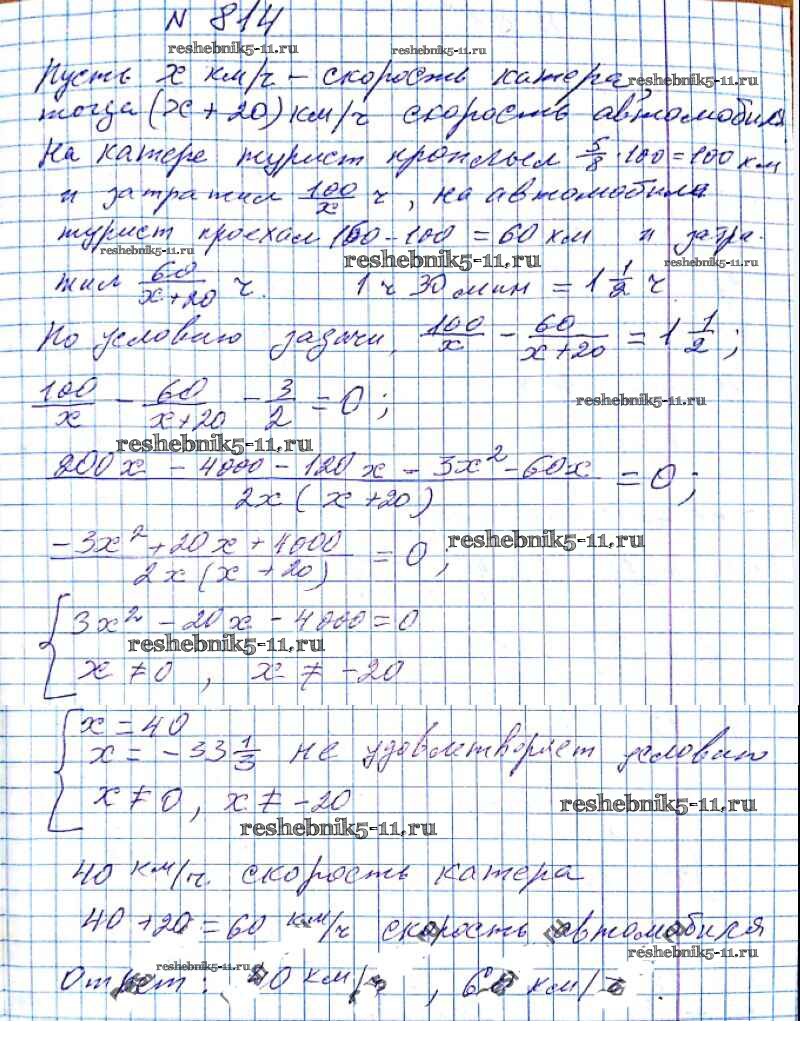 № 814
reshebnik5-11.ru reshebnik5-11.ru
Пусть x км/ч – скорость катера, reshebnik5-11.ru
тогда (x + 20) км/ч скорость автомобиля.
На катере турист проплыл 5/8 · 160 = 100 км
и затратил 100/x ч, на автомобиле
турист проехал 160 - 100 = 60 км и затра-
reshebnik5-11.ru reshebnik5-11.ru reshebnik5-11.ru
тил 60/(x+20) ч. 1 ч 30 мин = 1 1/2 ч
По условию задачи, 100/x - 60/(x+20) = 1 1/2;
100/x - 60/(x+20) - 3/2 = 0; reshebnik5-11.ru
reshebnik5-11.ru
(200x - 4000 - 120x - 3x² - 60x)/(2x(x+20)) = 0;
(-3x² + 20x + 4000)/(2x(x+20)) = 0; reshebnik5-11.ru
{ 3x² - 20x - 4000 = 0
reshebnik5-11.ru
x ≠ 0, x ≠ -20
{ x = 40
x = -33 1/3 не удовлетворяет условию
x ≠ 0, x ≠ -20 reshebnik5-11.ru
reshebnik5-11.ru
40 км/ч скорость катера
40 + 20 = 60 км/ч скорость автомобиля
reshebnik5-11.ru
reshebnik5-11.ru
Ответ: 40 км/ч, 60 км/ч.